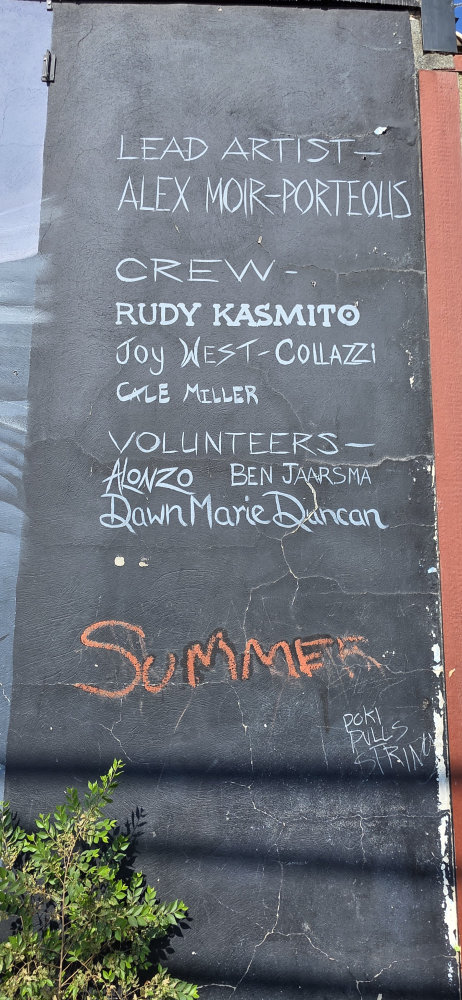 LEAD ARTIST-
ALEX MOIR-PORTEOUS
CREW-
RUDY KASMITO
Joy WEST-COLLAZZi
CALE MILLER
VOLUNTEERS-
ALONZO BEN JAARSMA
Dawn Marie Duncan
SUMMER
POKI
PULLS
STRINGS